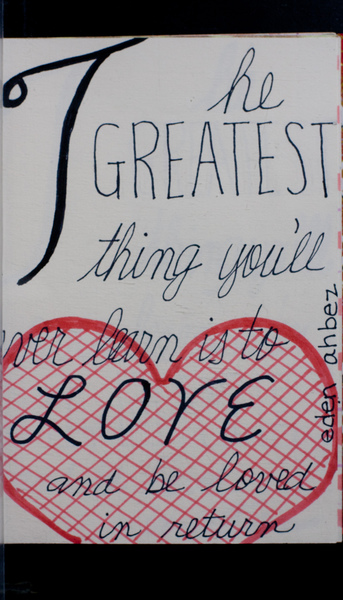 The
GREATEST
thing you'll
ever learn is to
LOVE
and be loved
in return
eden ahbez